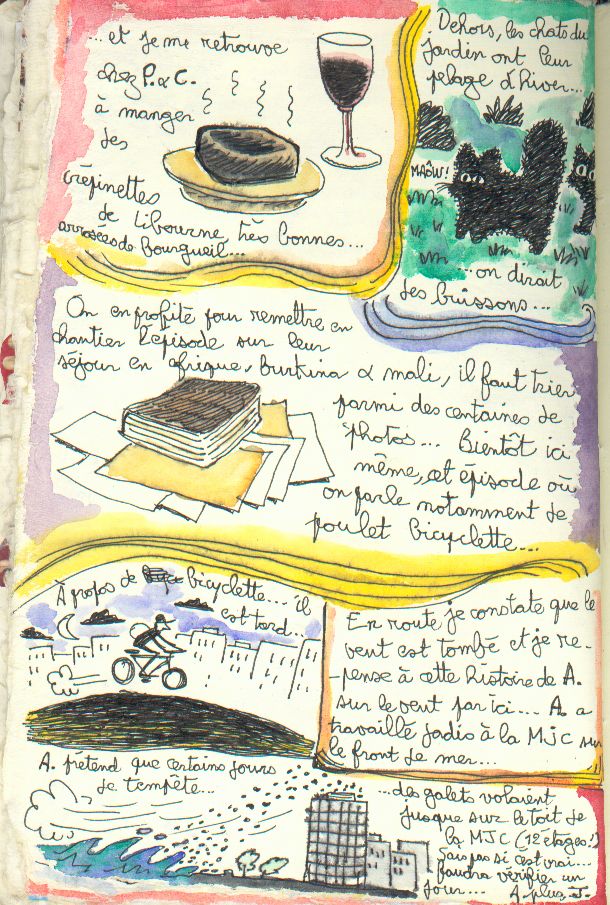 ...et je me retrouve
chez P. & C.
à manger
des
crépinettes
de Libourne, très bonnes...
arrosées de Bourgueil...
Dehors, les chats du
jardin ont leur
pelage d'hiver...
MAÔW!
...on dirait
des buissons...
On en profite pour remettre en
chantier l'épisode sur leur
séjour en afrique, Burkina & mali, il faut trier
parmi des centaines de
photos... Bientôt ici
même, cet épisode où
on parle notamment de
poulet bicyclette...
À propos de bicyclette... il
est tard...
En route je constate que le
vent est tombé et je re-
-pense à cette histoire de A.
sur le vent par ici... A. a
travaillé jadis à la MJC sur
le front de mer...
A. prétend que certains jours
de tempête...
...des galets volaient
jusque sur le toit de
la MJC (12 étages!)
Sais pas si c'est vrai...
faudra vérifier un
jour... A plus, J.